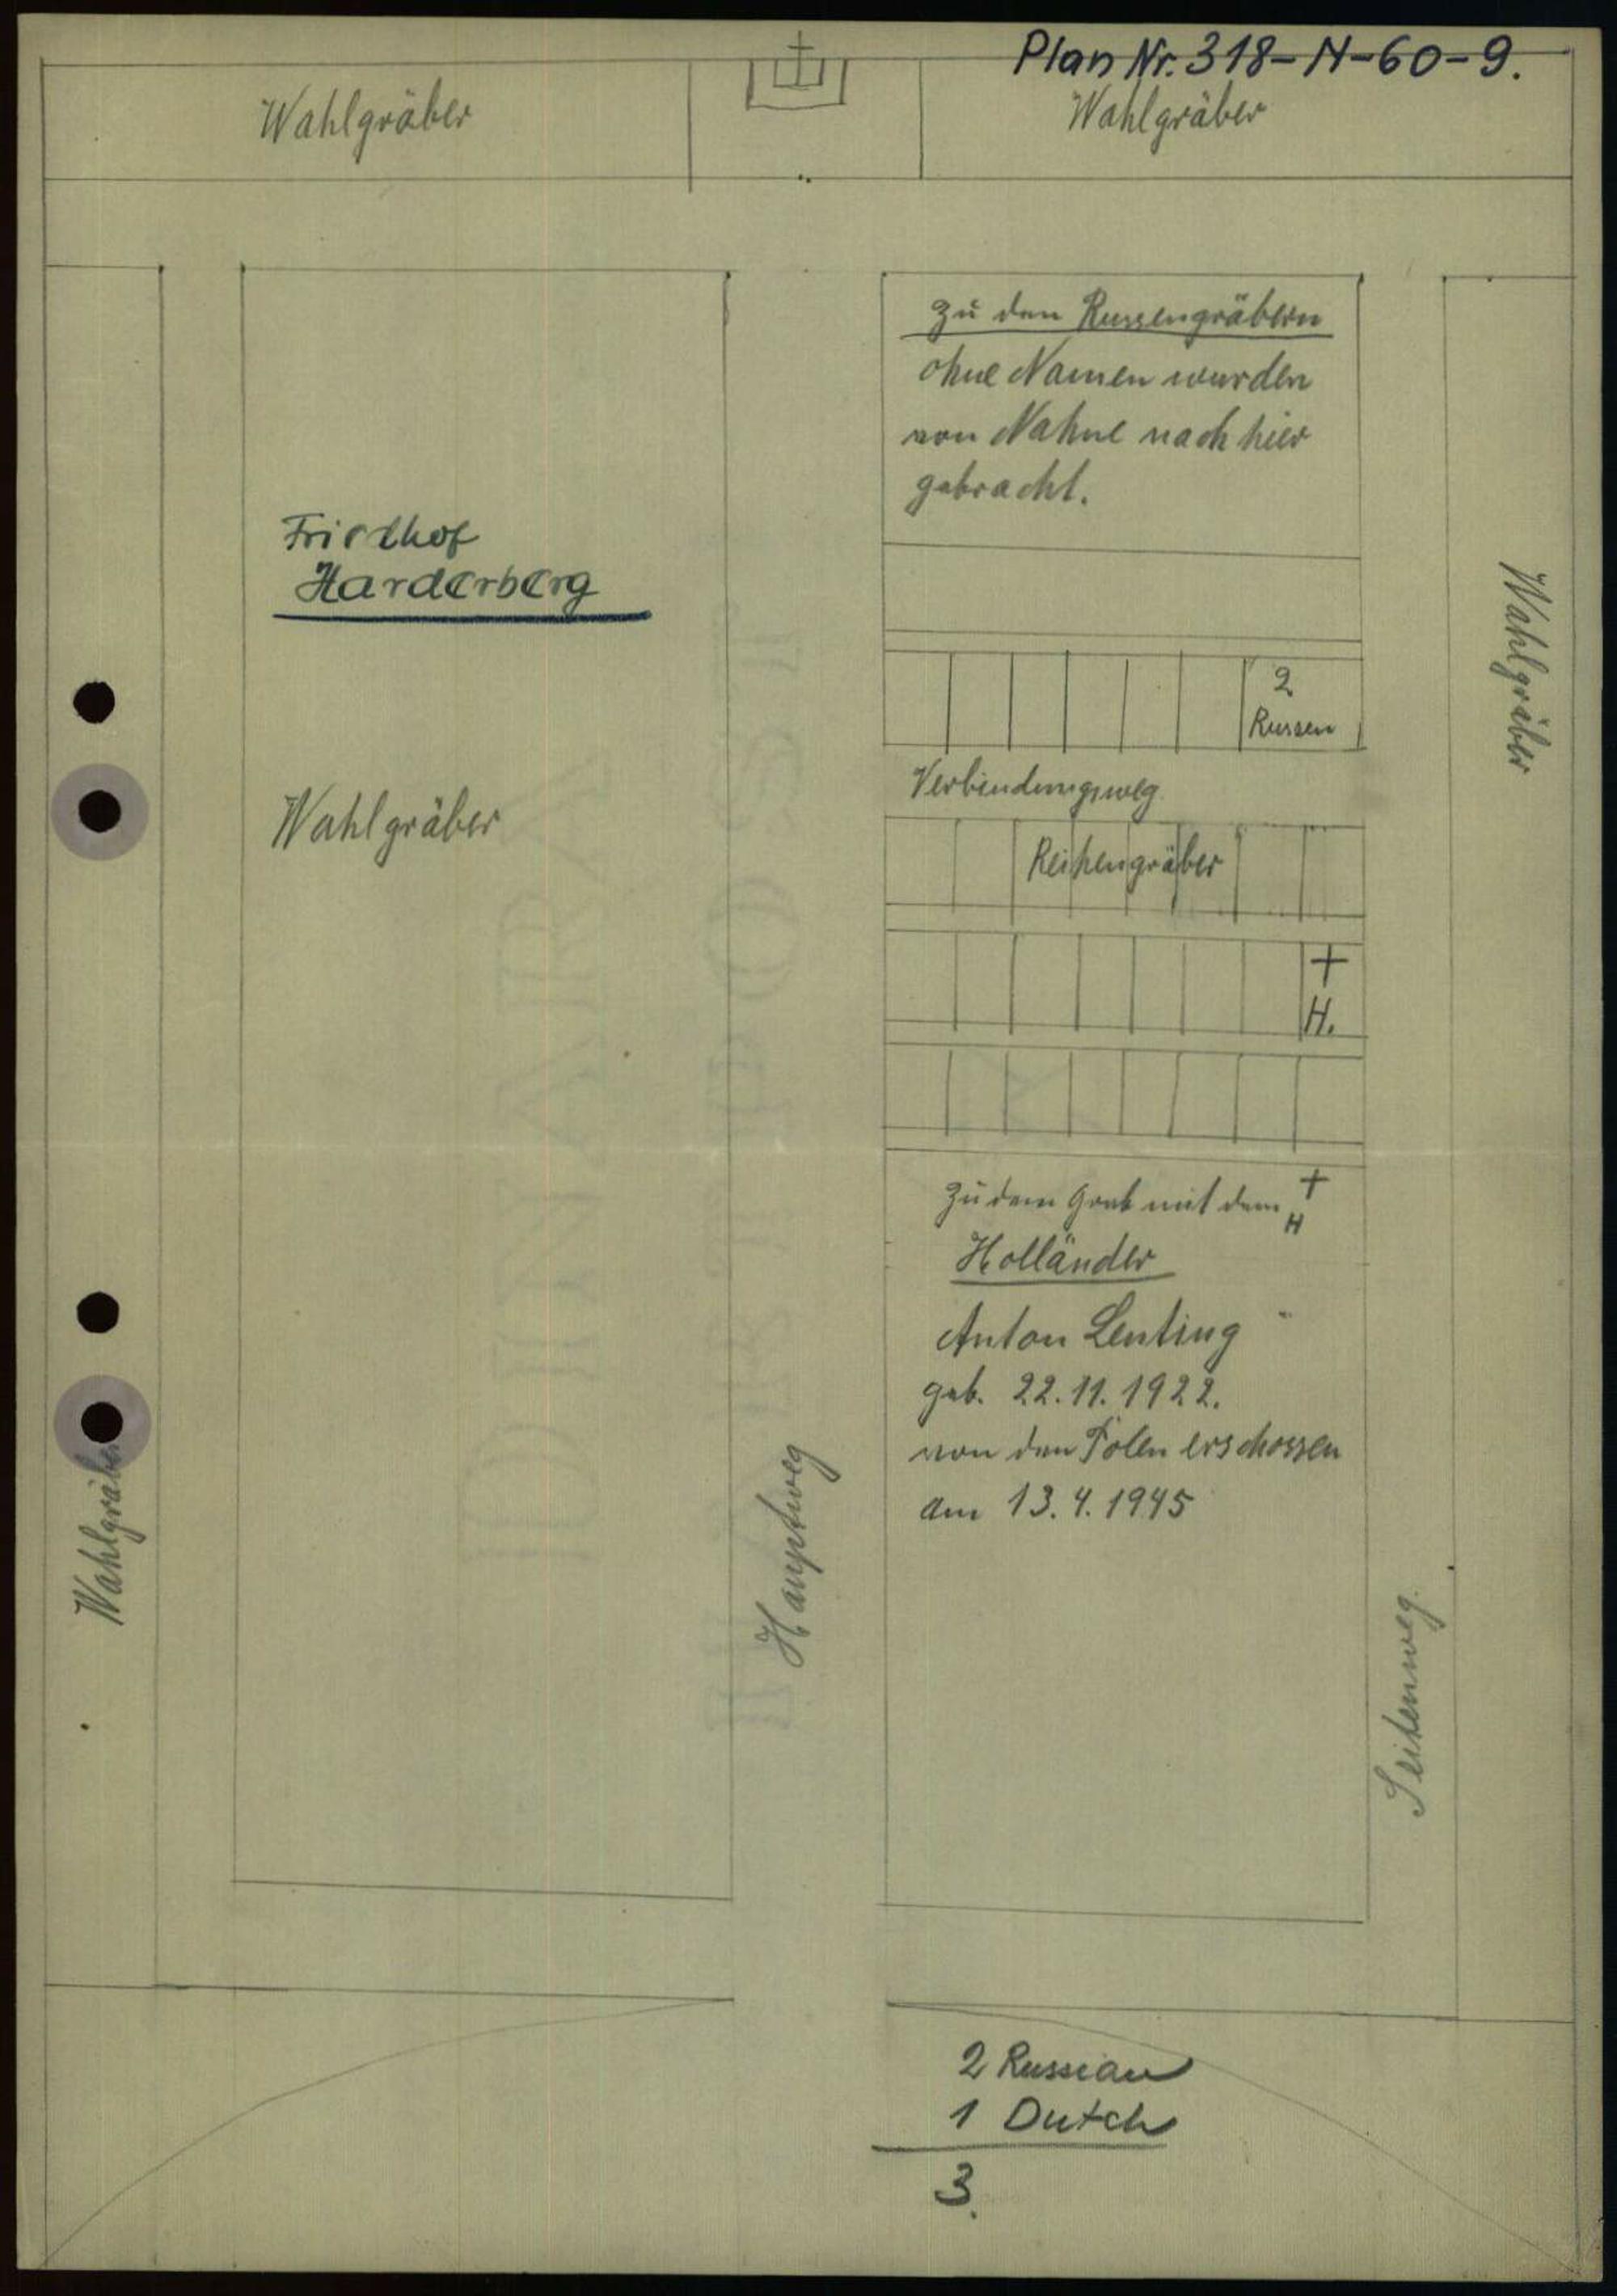 Plan Nr. 318-N-60-9.
Wahlgräber
Wahlgräber
Zu den Russengräbern
ohne Namen wurden
von Nahne nach hier
gebracht.
Friedhof
Harderberg
Wahlgräber
2
Russen
Verbindungsweg
Wahlgräber
Reihengräber
+
H.
Zu dem Grab mit dem +
H
Holländer
Anton Lenting
geb. 22.11.1922.
von den Polen erschossen
am 13.4.1945
Wahlgräber
Hauptweg
Seitenweg.
2 Russian
1 Dutch
3.